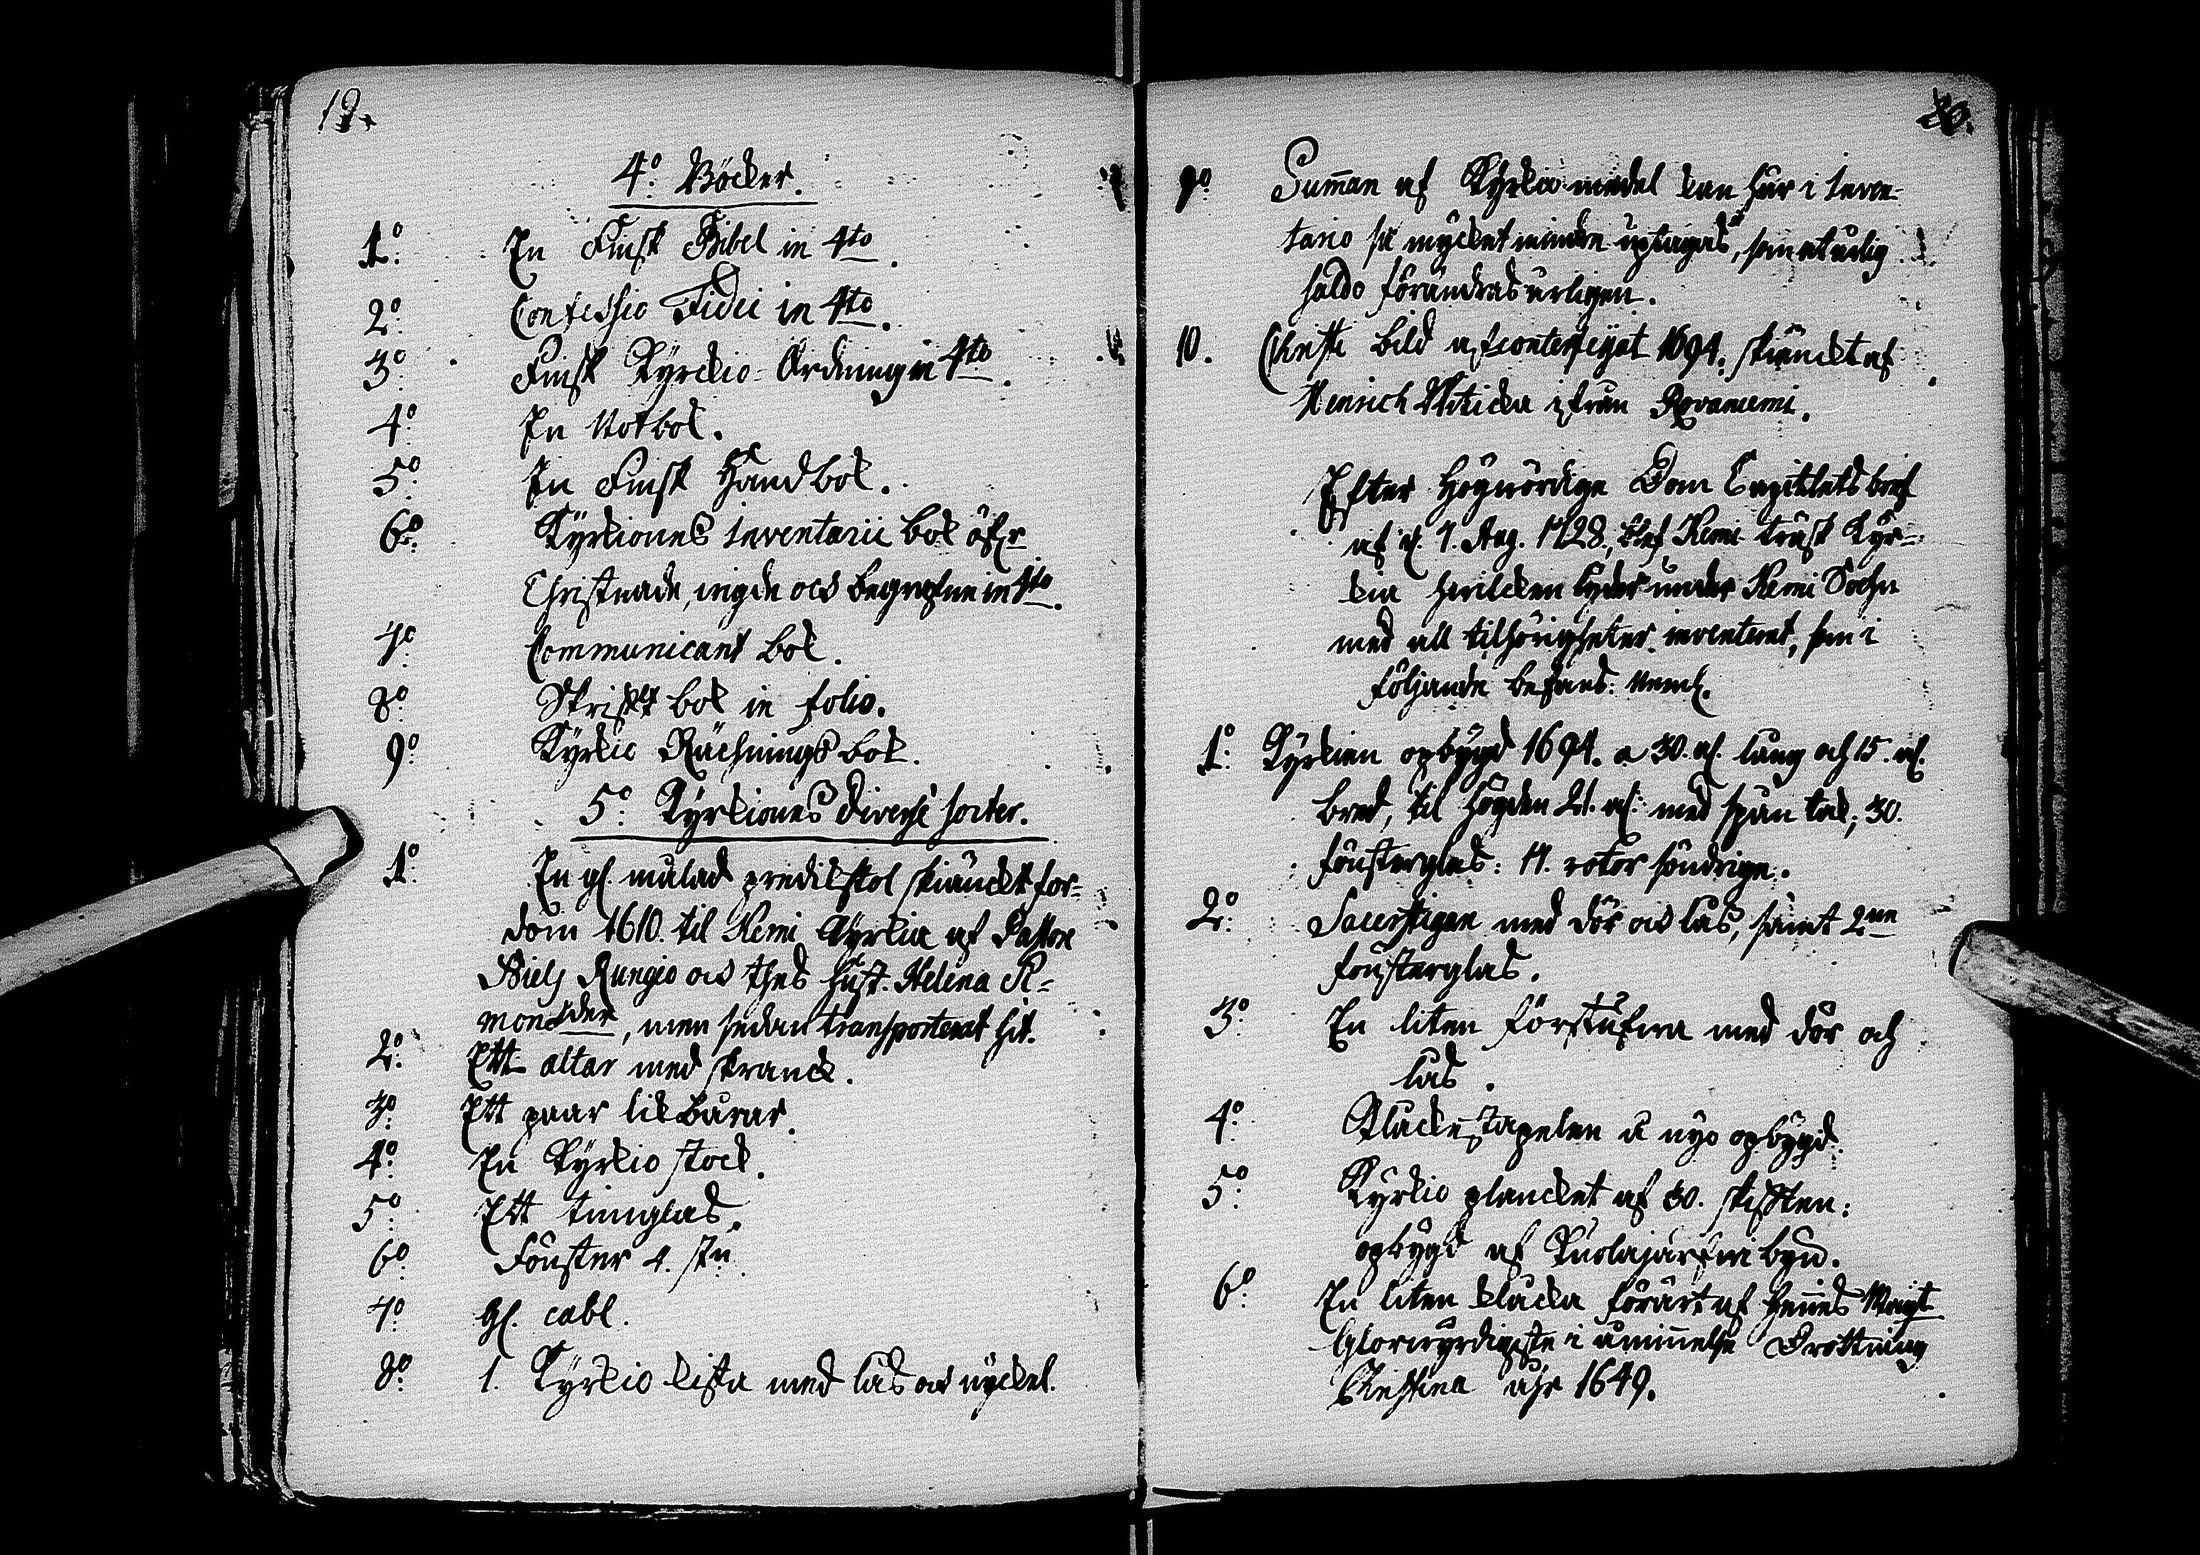 19.
4.o Böcker.
1.o En Finsk Bibel in 4to.
2.o Confessio Fidei in 4to.
3.o Finsk Kyrckio-Ordning in 4to.
4.o En Notbok.
5.o En Finsk Handbok.
6.o Kyrkiones Inventarii bok öfr
Christnade, vigde och begrafne in 4to.
7.o Communicant bok.
8.o Skrifft bok in folio.
9.o Kyrkio Rächnings bok.
5.o Kyrkiones diverse sorter.
1.o En gl. målad predikstol skiänckt for-
dom 1610. til Kemi Kyrkia af Pastor
Niels Rungio och thes Hust. Helena
, men sedan transporterat hit.
2.o Ett altar med skranck.
3.o Ett paar lik bårar.
4.o En Kyrkio stock.
5.o Ett timglas.
6.o Fönster 4. stn
7.o Gl. cabl.
8.o 1. Kyrkio kista med lås och nyckel.
9.o Summan af Kyrkio medel kan här i Inven-
tario så mycket mindre uptagas, som
saldo förändras årligen.
10. Christi bild afconterfeyat 1694. skiänckt af
Henrich ifrån Rovaniemi.
Efter Högvördige Dom Capitlets bref
af d. 7. Aug. 1728, blef Kemi träsk Kyr-
kia hvilcken lyder under Kemi Sochn
med all tilhörigheter inventerat, som i
följande befans: neml.
1.o Kyrkien opbygd 1694. a 30. al. lång och 15. al.
bred, til högden 21. al. med spån tak; 30.
fönsterglas: 17. rotor söndrige.
2.o Sacerstigan med dör och lås, samt 2ne
fönsterglas.
3.o En liten förstufva med dör och
lås.
4.o Klåckestapelen å nyo opbygd.
5.o Kyrkio plancket af 30. skifften:
opbygd af Kuolajärfwi byn.
6.o En liten klåcka förärt af Hennes Maijt
Glorvyrdigste i åminnelse Drottning
Christina åhr 1649.